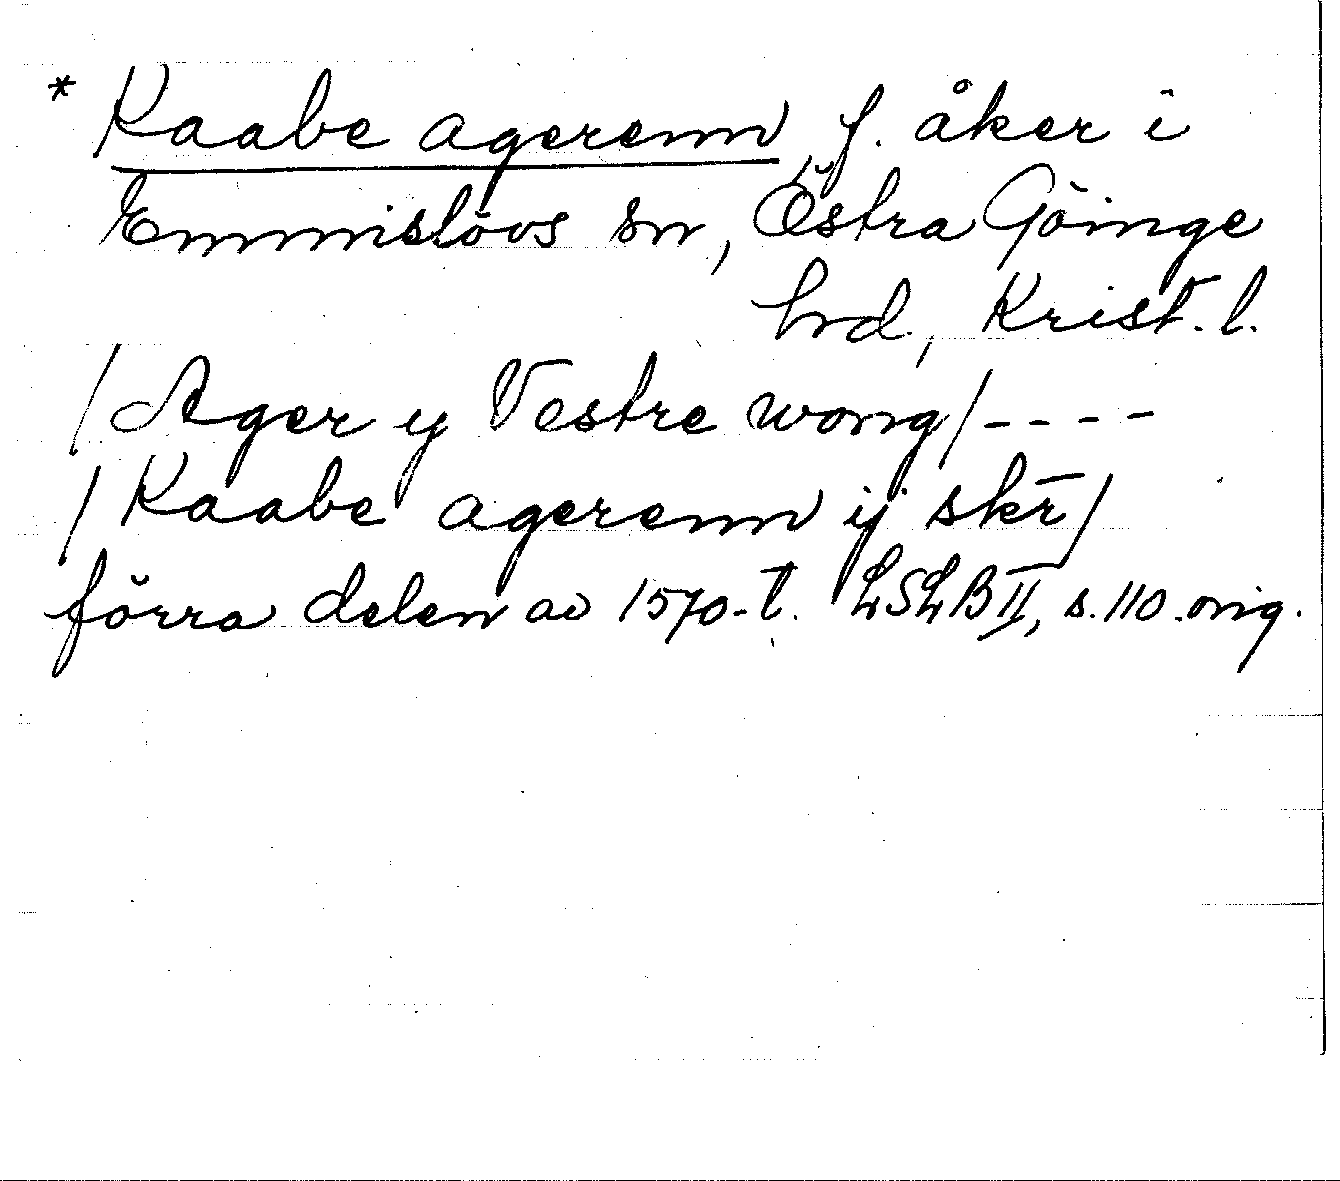 * Kaabe agerenn, f. åker i
Emmislövs sn, Östra Göinge
hrd, Krist. l.
/Ager y Vestre wong/----
/Kaabe agerenn ij skr̄/
förra delen av 1570-t. LSLB II, s. 110 orig.